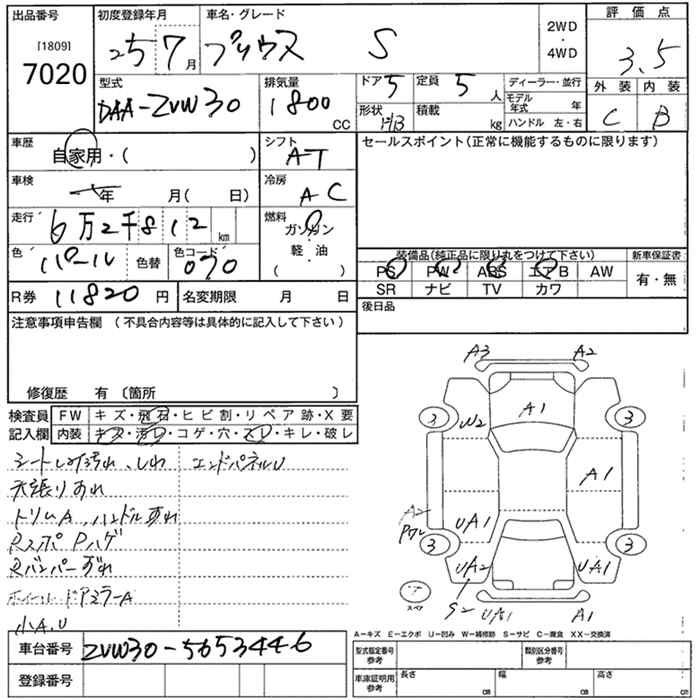 出品番号
[1809]
7020
初度登録年月
25 7月
車名・グレード
プリウス S
2WD
・
4WD
評価点
3.5
外装 内装
C B
型式
DAA-ZVW30
排気量
1800
CC
ドア 5
形状 HB
定員 5人
積載 kg
ディーラー・並行
モデル年式 年
ハンドル 左・右
車歴
自家用・( )
シフト
AT
車検
年 月( 日)
冷房
AC
走行
6万2千812 km
燃料
ガソリン
軽・油
( )
色
パール 色替
色コード
070
R券 11820円
名変期限 月 日
セールスポイント(正常に機能するものに限ります)
装備品(純正品に限り丸をつけて下さい)
PS PW ABS エアB AW
SR ナビ TV カワ
新車保証書
有・無
後日品
注意事項申告欄 (不具合内容等は具体的に記入して下さい)
修復歴 有 〔箇所 〕
検査員記入欄
FW キズ・飛石・ヒビ割・リペア跡・X要
内装 キズ・汚レ・コゲ・穴・スレ・キレ・破レ
シートしみ汚れ、しわ エンドパネルU
天張り汚れ
トリムA、ハンドルすれ
RスポPハゲ
Rバンパーずれ
ホイール・ドアミラーA
小A.U
A3 A2
A1
3 3
W2
A1
A2
UA1
3 3
UA2 UA1
S2
UA1 A1
スペア
A－キズ E－エクボ U－凹み W－補修跡 S－サビ C－腐食 XX－交換済
車台番号 ZVW30-5653446
登録番号
型式指定番号 参考
類別区分番号 参考
車庫証明用 参考
長さ cm
幅 cm
高さ cm